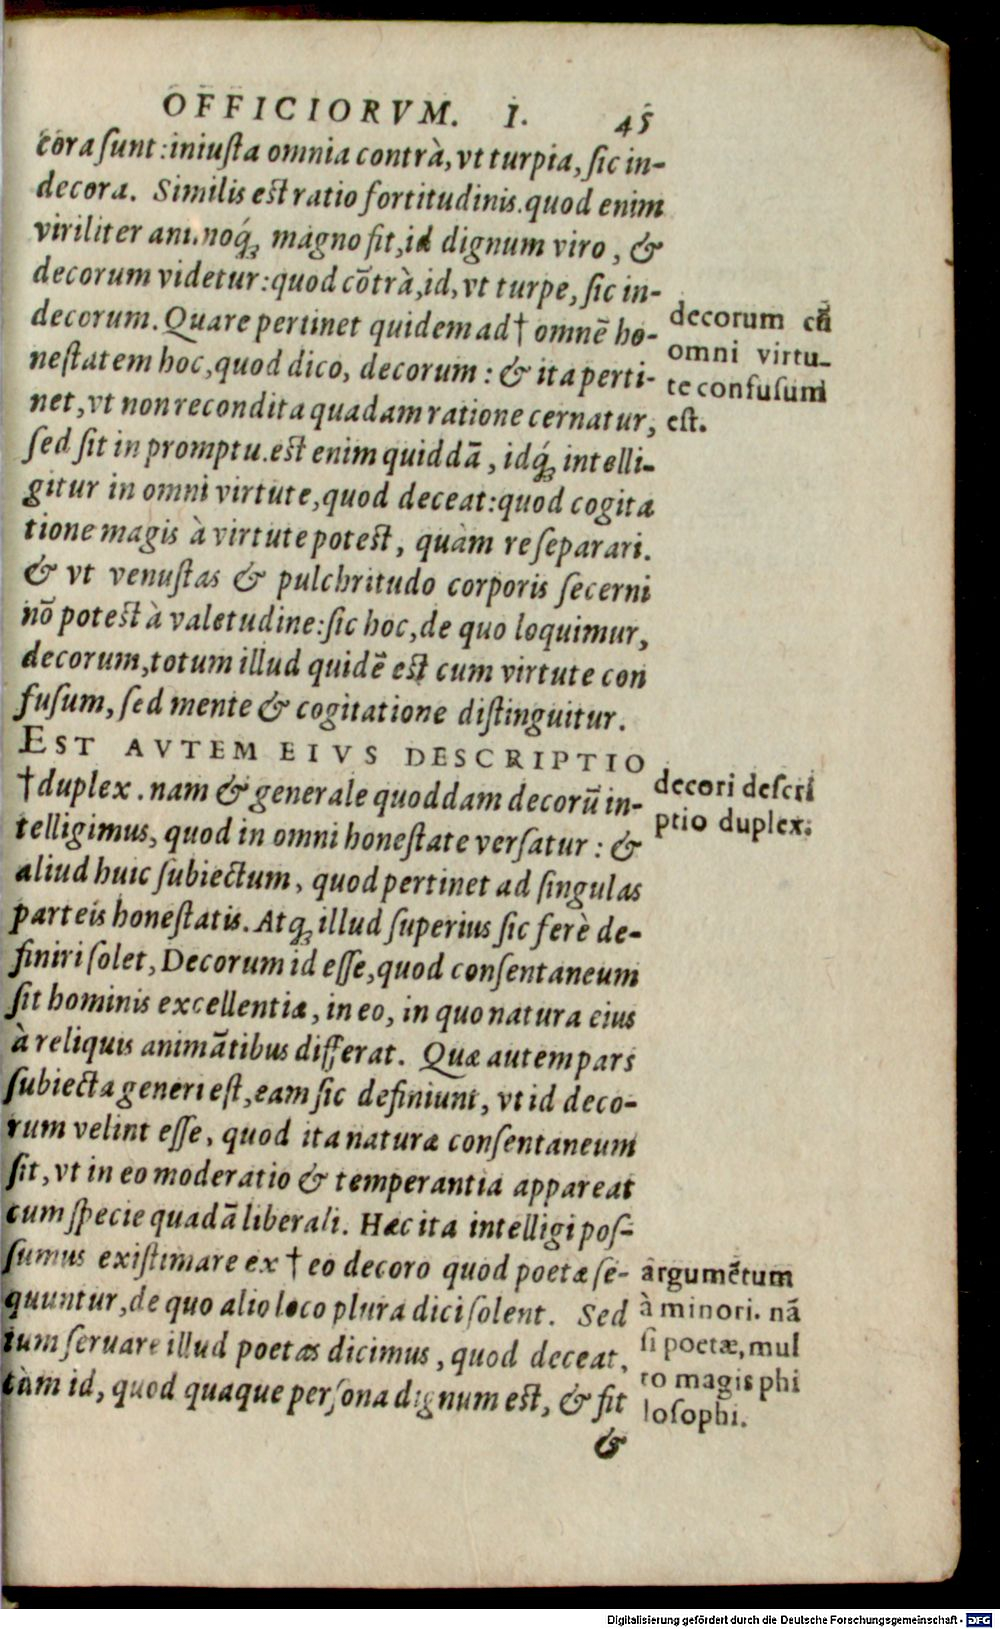 OFFICIORVM. I. 45
cora sunt: iniusta omnia contrà, vt turpia, sic in-
decora. Similis est ratio fortitudinis. quod enim
viriliter animoq́; magno fit, id dignum viro, &
decorum videtur: quod cōtrà, id, vt turpe, sic in-
decorum. Quare pertinet quidem ad † omnē ho-
nestatem hoc, quod dico, decorum: & ita perti-
net, vt non recondita quadam ratione cernatur,
sed sit in promptu. est enim quiddā, idq́; intelli-
gitur in omni virtute, quod deceat: quod cogita
tione magis à virtute potest, quàm re separari.
& vt venustas & pulchritudo corporis secerni
nō potest à valetudine: sic hoc, de quo loquimur,
decorum, totum illud quidē est cum virtute con
fusum, sed mente & cogitatione distinguitur.
EST AVTEM EIVS DESCRIPTIO
† duplex. nam & generale quoddam decorū in-
telligimus, quod in omni honestate versatur: &
aliud huic subiectum, quod pertinet ad singulas
parteis honestatis. Atq; illud superius sic ferè de-
finiri solet, Decorum id esse, quod consentaneum
sit hominis excellentiæ, in eo, in quo natura eius
à reliquis animātibus differat. Quæ autem pars
subiecta generi est, eam sic definiunt, vt id deco-
rum velint esse, quod ita naturæ consentaneum
sit, vt in eo moderatio & temperantia appareat
cum specie quadā liberali. Hæc ita intelligi pos-
sumus existimare ex † eo decoro quod poetæ se-
quuntur, de quo alio loco plura dici solent. Sed
tum seruare illud poetas dicimus, quod deceat,
cùm id, quod quaque persona dignum est, & fit
&
decorum cū
omni virtu-
te confusum
est.
decori descri
ptio duplex.
argumētum
à minori. nā
si poetæ, mul
to magis phi
losophi.
Digitalisierung gefördert durch die Deutsche Forschungsgemeinschaft - DFG